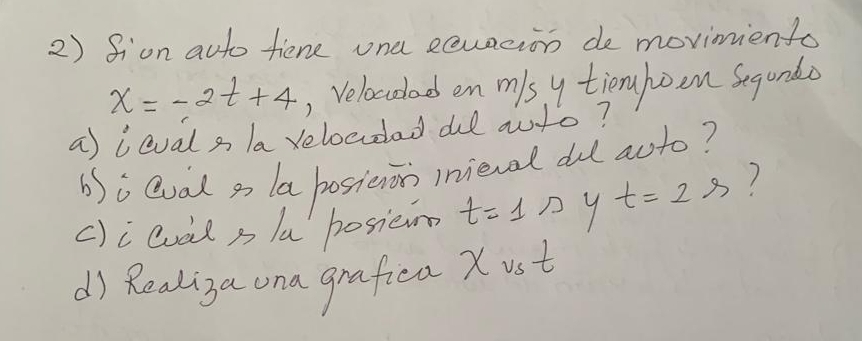 2) Si un auto tiene una ecuación de movimiento
x = -2t + 4, Velocidad en m/s y tiempo en Segundo
a) ¿cuál es la velocidad del auto?
b) ¿Cuál es la posición inicial del auto?
c) ¿Cuál es la posición t=1 s y t=2 s?
d) Realiza una grafica X vs t